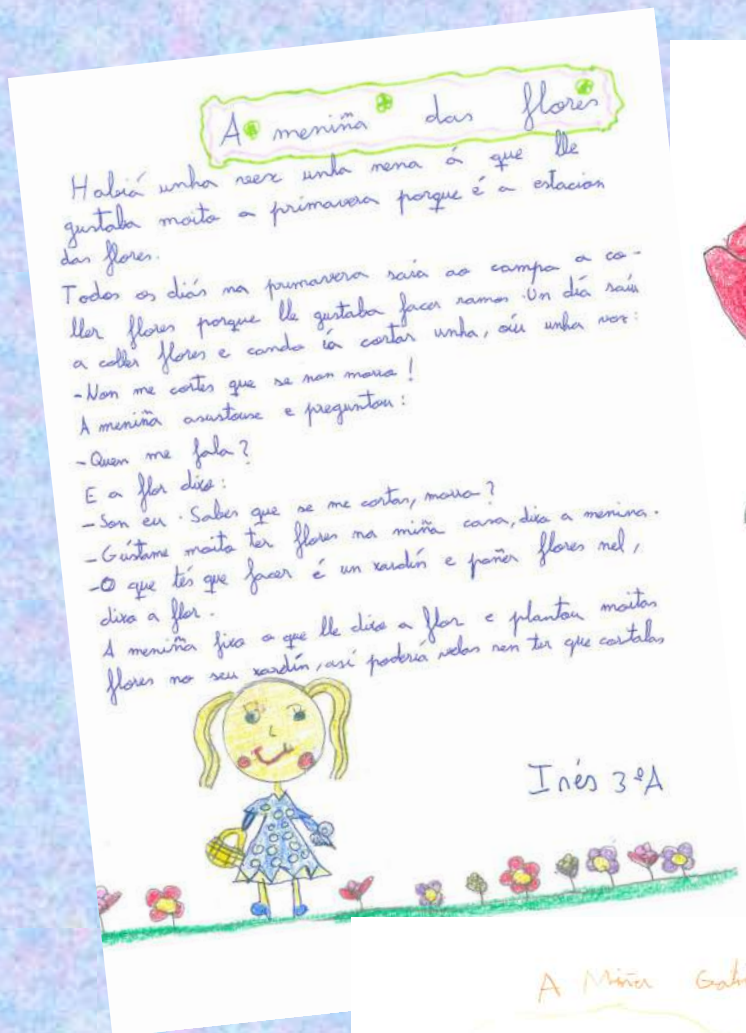 A meniña das flores
Habiá unha veex unha nena á que lle
gustaba moito a primavera porque é a estacion
das flores.
Todos os diás na primavera saia ao campo a co-
ller flores porque lle gustaba facer ramos. Un día saiu
a coller flores e cando ia cortar unha, oiu unha voz:
-Non me cortes que se non morro!
A meniña asustouse e preguntou:
-Quen me fala?
E a flor dixo:
-Son eu. Sabes que se me cortas, morro?
-Gústame moito ter flores na miña casa, dixo a menina.
-O que tés que facer é un xardín e poñer flores nel,
dixo a flor.
A meniña fixo o que lle dixo a flor e plantou moitas
flores no seu xardín, así podería velas sen ter que cortalas
Inés 3ºA
A Miña